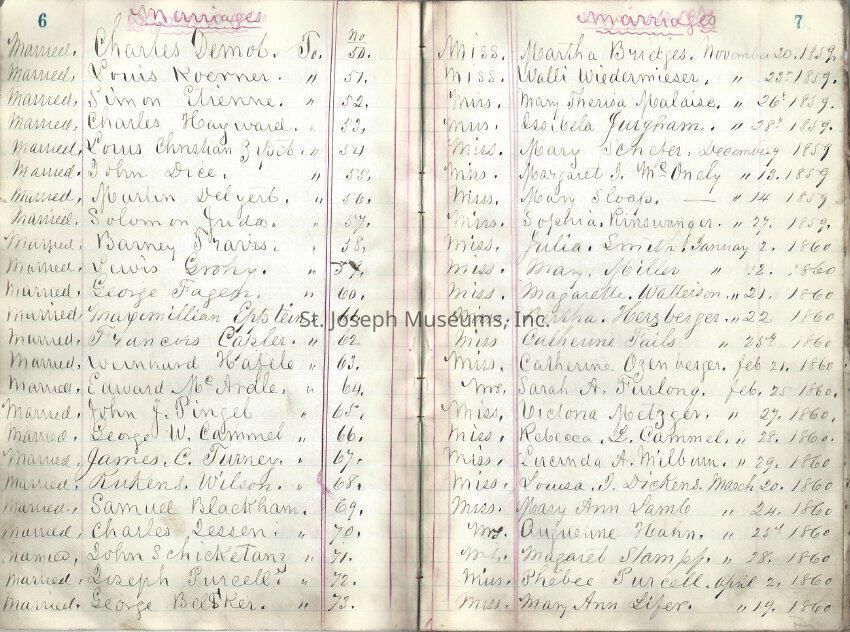 6 Marriages
Marriages 7
No
Married, Charles Demot. To. 50. Miss. Martha Bridges. November 20. 1859.
Married, Louis Koerner. " 51. Miss. Walli Wiedermieser. " 23d 1859.
Married, Simon Etienne. " 52. Miss. Mary Therisa Malaise. " 26t 1859.
Married, Charles Hayward. " 53. Miss. Issibela Jurgham. " 28t 1859.
Married, Louis Christian " 54 Miss. Mary Schefer. December 9 1859
Married, John Dice. " 55. Miss. Margaret J. McOnely " 13. 1859
Married, Martin Delgert. " 56. Miss. Mary Sloap. — " 14 1859
Married, Solomon Juda. " 57. Miss. Sophia Rinswanger. " 27. 1859.
Married, Barney Travis. " 58. Miss. Julia. Smith. January 2. 1860
Married, Lewis Grohy. " 59. Miss. Mary. Miller " 12. 1860
Married, George Fagem. " 60. Miss. Magarette. Watterson. " 21. 1860
Married, Maximillian Eppstein 61 Herzberger. " 22 1860
St. Joseph Museums, Inc.
Married, Francois Capler. " 62 Miss Catherine Fails " 25d 1860
Married, Wernhard Hafele " 63. Miss. Catherine Ozenberger. feb 21. 1860
Married, Edward McArdle. " 64. Mrs. Sarah A. Furlong. feb. 25 1860
Married, John J. Pingel " 65. Miss, Victoria Metzger. " 27. 1860.
Married, George W. Cammel " 66. Miss. Rebecca L. Cammel. " 28. 1860.
Married, James. C. Turney. " 67. Miss. Lucinda A. Milburn. " 29. 1860.
Married, Rukens. Wilson. " 68. Miss. Louisa. J. Dickens. March 20. 1860
Married, Samuel Blackham. 69. Miss. Mary Ann Lamb " 24. 1860
Married, Charles Jessen. " 70. Mrs. Augustine Hahn. " 25d 1860
Married, John Schicketanz " 71. Magaret Stampf. " 28. 1860
Married, Joseph Purcell. " 72. Miss. Phebee Purcell. April 2. 1860
Married, George Becker. " 73. Miss. Mary Ann Lifer. " 19. 1860